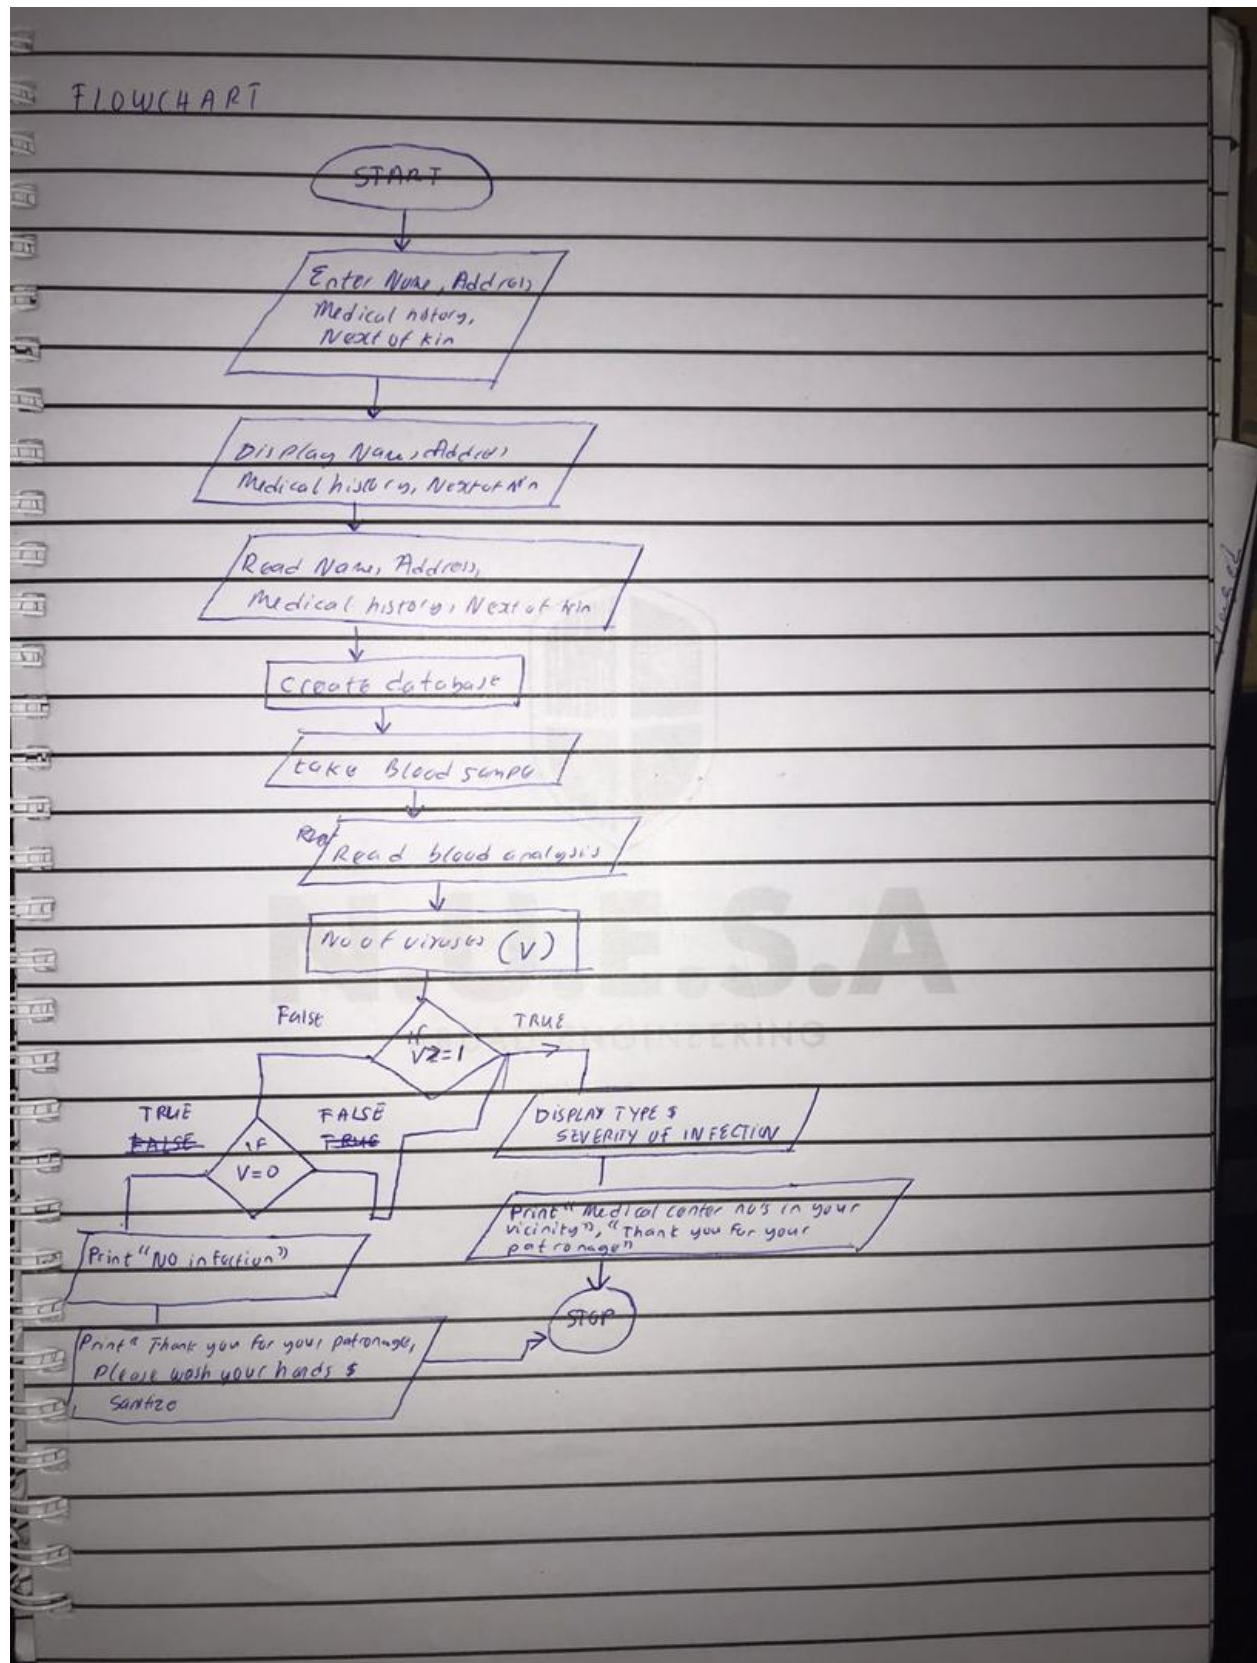 FLOWCHART
START
Enter Name, Address
Medical history,
Next of kin
Display Name, Address
Medical history, Next of kin
Read Name, Address,
Medical history, Next of kin
Create database
take Blood sample
Read blood analysis
No of viruses (V)
False
TRUE
if
V>=1
TRUE
FALSE
FALSE
TRUE
if
V=0
DISPLAY TYPE $
SEVERITY OF INFECTION
Print "Medical center no's in your
vicinity", "Thank you for your
patronage"
Print "NO infection"
STOP
Print " Thank you for your patronage,
Please wash your hands $
Sanitize
N.U.E.S.A
ENGINEERING